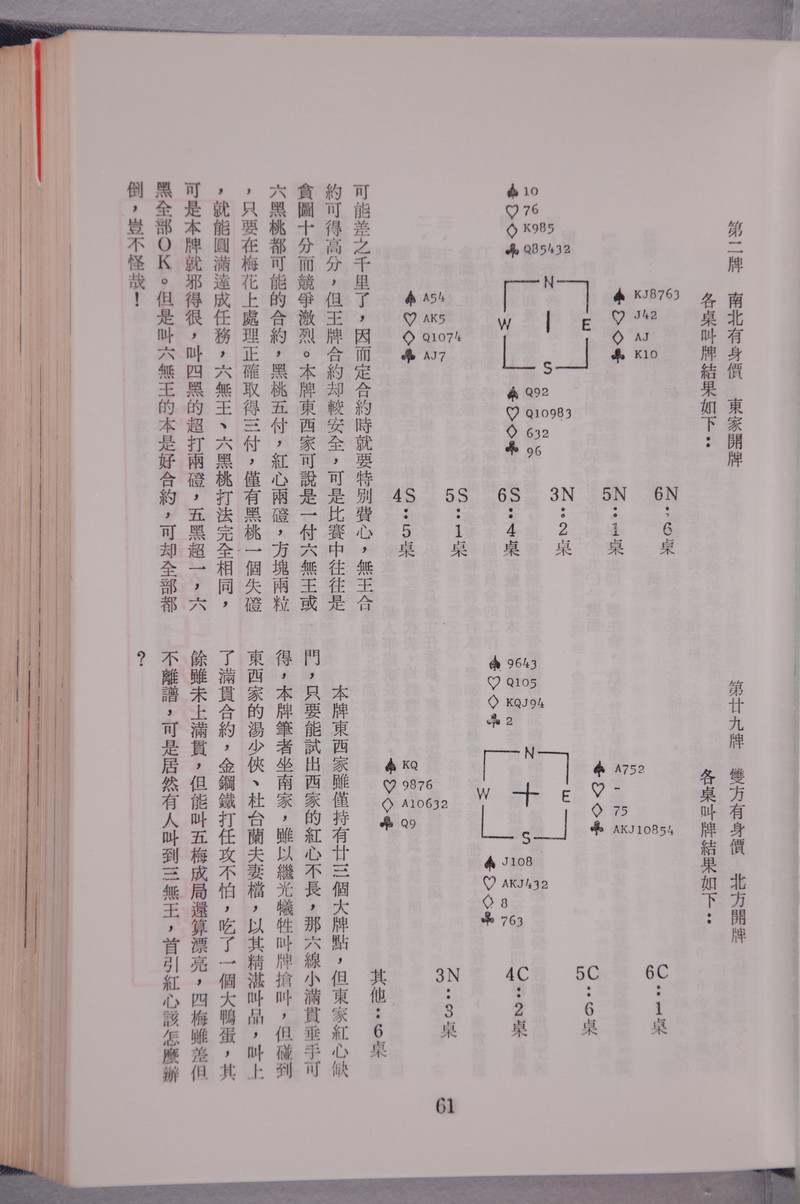 第二牌　南北有身價　東家開牌
各桌叫牌結果如下：
♠ 10
♡ 76
♢ K985
♣ Q85432
♠ A54
♡ AK5
♢ Q1074
♣ AJ7
N
W E
S
♠ KJ8763
♡ J42
♢ AJ
♣ K10
♠ Q92
♡ Q10983
♢ 632
♣ 96
6N：6桌
5N：1桌
3N：2桌
6S：4桌
5S：1桌
4S：5桌
可能差之千里了，因而定合約時就要特別費心，無王合
約可得高分，但王牌合約却較安全，可是比賽中往往是
貪圖十分而競爭激烈。本牌東西家可說是一付六無王或
六黑桃都可能的合約，黑桃五付，紅心兩磴，方塊兩粒
，只要在梅花上處理正確取得三付，僅有黑桃一個失磴
，就能圓滿達成任務，六無王、六黑桃打法完全相同，
可是本牌就邪得很，叫四黑的超打兩磴，五黑超一，六
黑全部OK。但是叫六無王的本是好合約，可却全部都
倒，豈不怪哉！
第廿九牌　雙方有身價　北方開牌
各桌叫牌結果如下：
♠ 9643
♡ Q105
♢ KQJ94
♣ 2
♠ KQ
♡ 9876
♢ A10632
♣ Q9
N
W E
S
♠ A752
♡ -
♢ 75
♣ AKJ10854
♠ J108
♡ AKJ432
♢ 8
♣ 763
6C：1桌
5C：6桌
4C：2桌
3N：3桌
其他：6桌
本牌東西家雖僅持有廿三個大牌點，但東家紅心缺
門，只要能試出西家的紅心不長，那六線小滿貫垂手可
得，本牌筆者坐南家，雖以繼光犧牲叫牌搶叫，但碰到
東西家的湯少俠、杜台蘭夫妻檔，以其精湛叫品，叫上
了滿貫合約，金鋼鐵打任攻不怕，吃了一個大鴨蛋，其
餘雖未上滿貫，但能叫五梅成局還算漂亮，四梅雖差但
不離譜，可是居然有人叫到三無王，首引紅心該怎麼辦
？
61